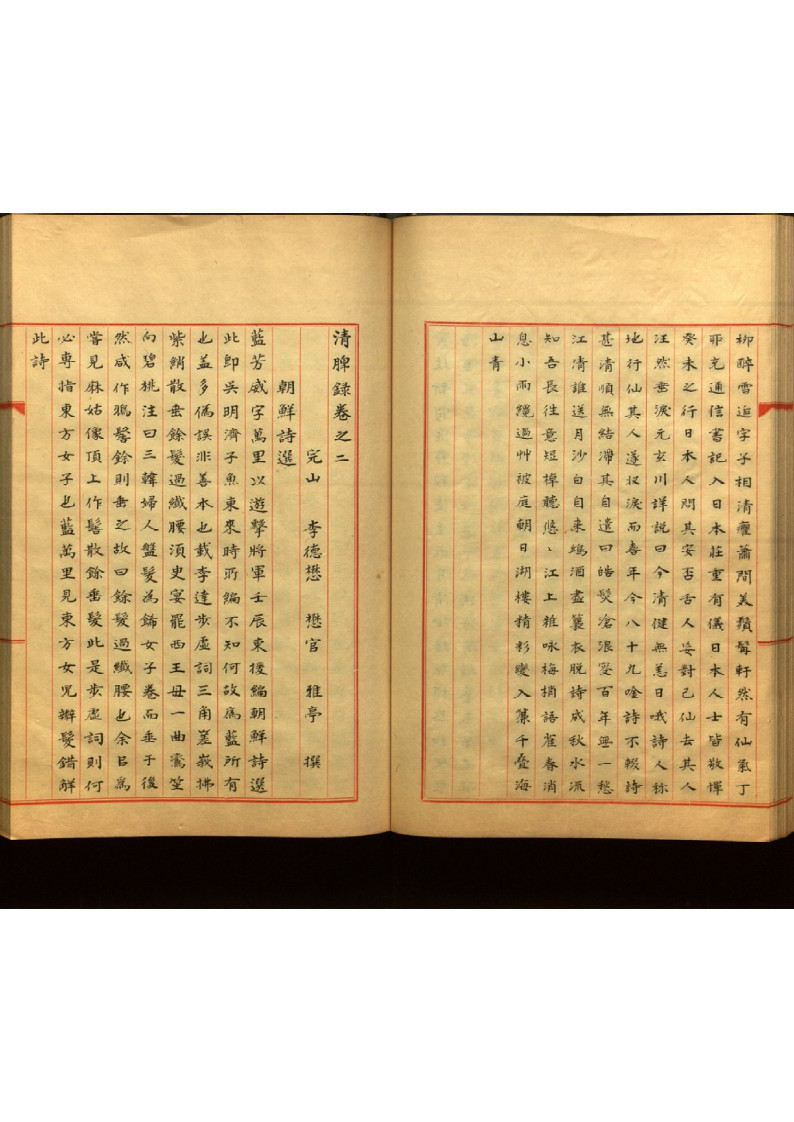 柳醉雪逅字子相清癯蕭閒美鬚髯軒然有仙氣丁
卯充通信書記入日本莊重有儀日本人士皆敬憚
癸未之行日本人問其安否舌人妄對已仙去其人
汪然垂淚元玄川詳說曰今清健無恙日哦詩人称
地行仙其人遂収淚而喜年今八十九唫詩不輟詩
甚清順無結滯其自遣曰皓髮滄浪叟百年無一愁
江清誰送月沙白自来鳩酒盡蓑衣脱詩成秋水流
知吾長往意短棹聽悠〻江上雜咏梅梢語雀春消
息小雨纔過艸被庭朝日湖樓精彩變入簾千疊海
山青
清脾録卷之二
完山 李德懋 懋官 雅亭 撰
朝鮮詩選
藍芳威字萬里以遊擊將軍壬辰東援編朝鮮詩選
此即吳明濟子魚東來時所編不知何故為藍所有
也盖多偽誤非善本也載李達步虛詞三角峩嵯拂
紫綃散垂餘髮過纖腰須史宴罷西王母一曲鸞笙
向碧桃注曰三韓婦人盤髮為餙女子卷而垂于後
然咸作鴉鬟餘則垂之故曰餘髮過纖腰也余㠯為
嘗見麻姑像頂上作髻散餘垂髮此是步虛詞則何
必専指東方女子也藍萬里見東方女児辮髮錯解
此詩